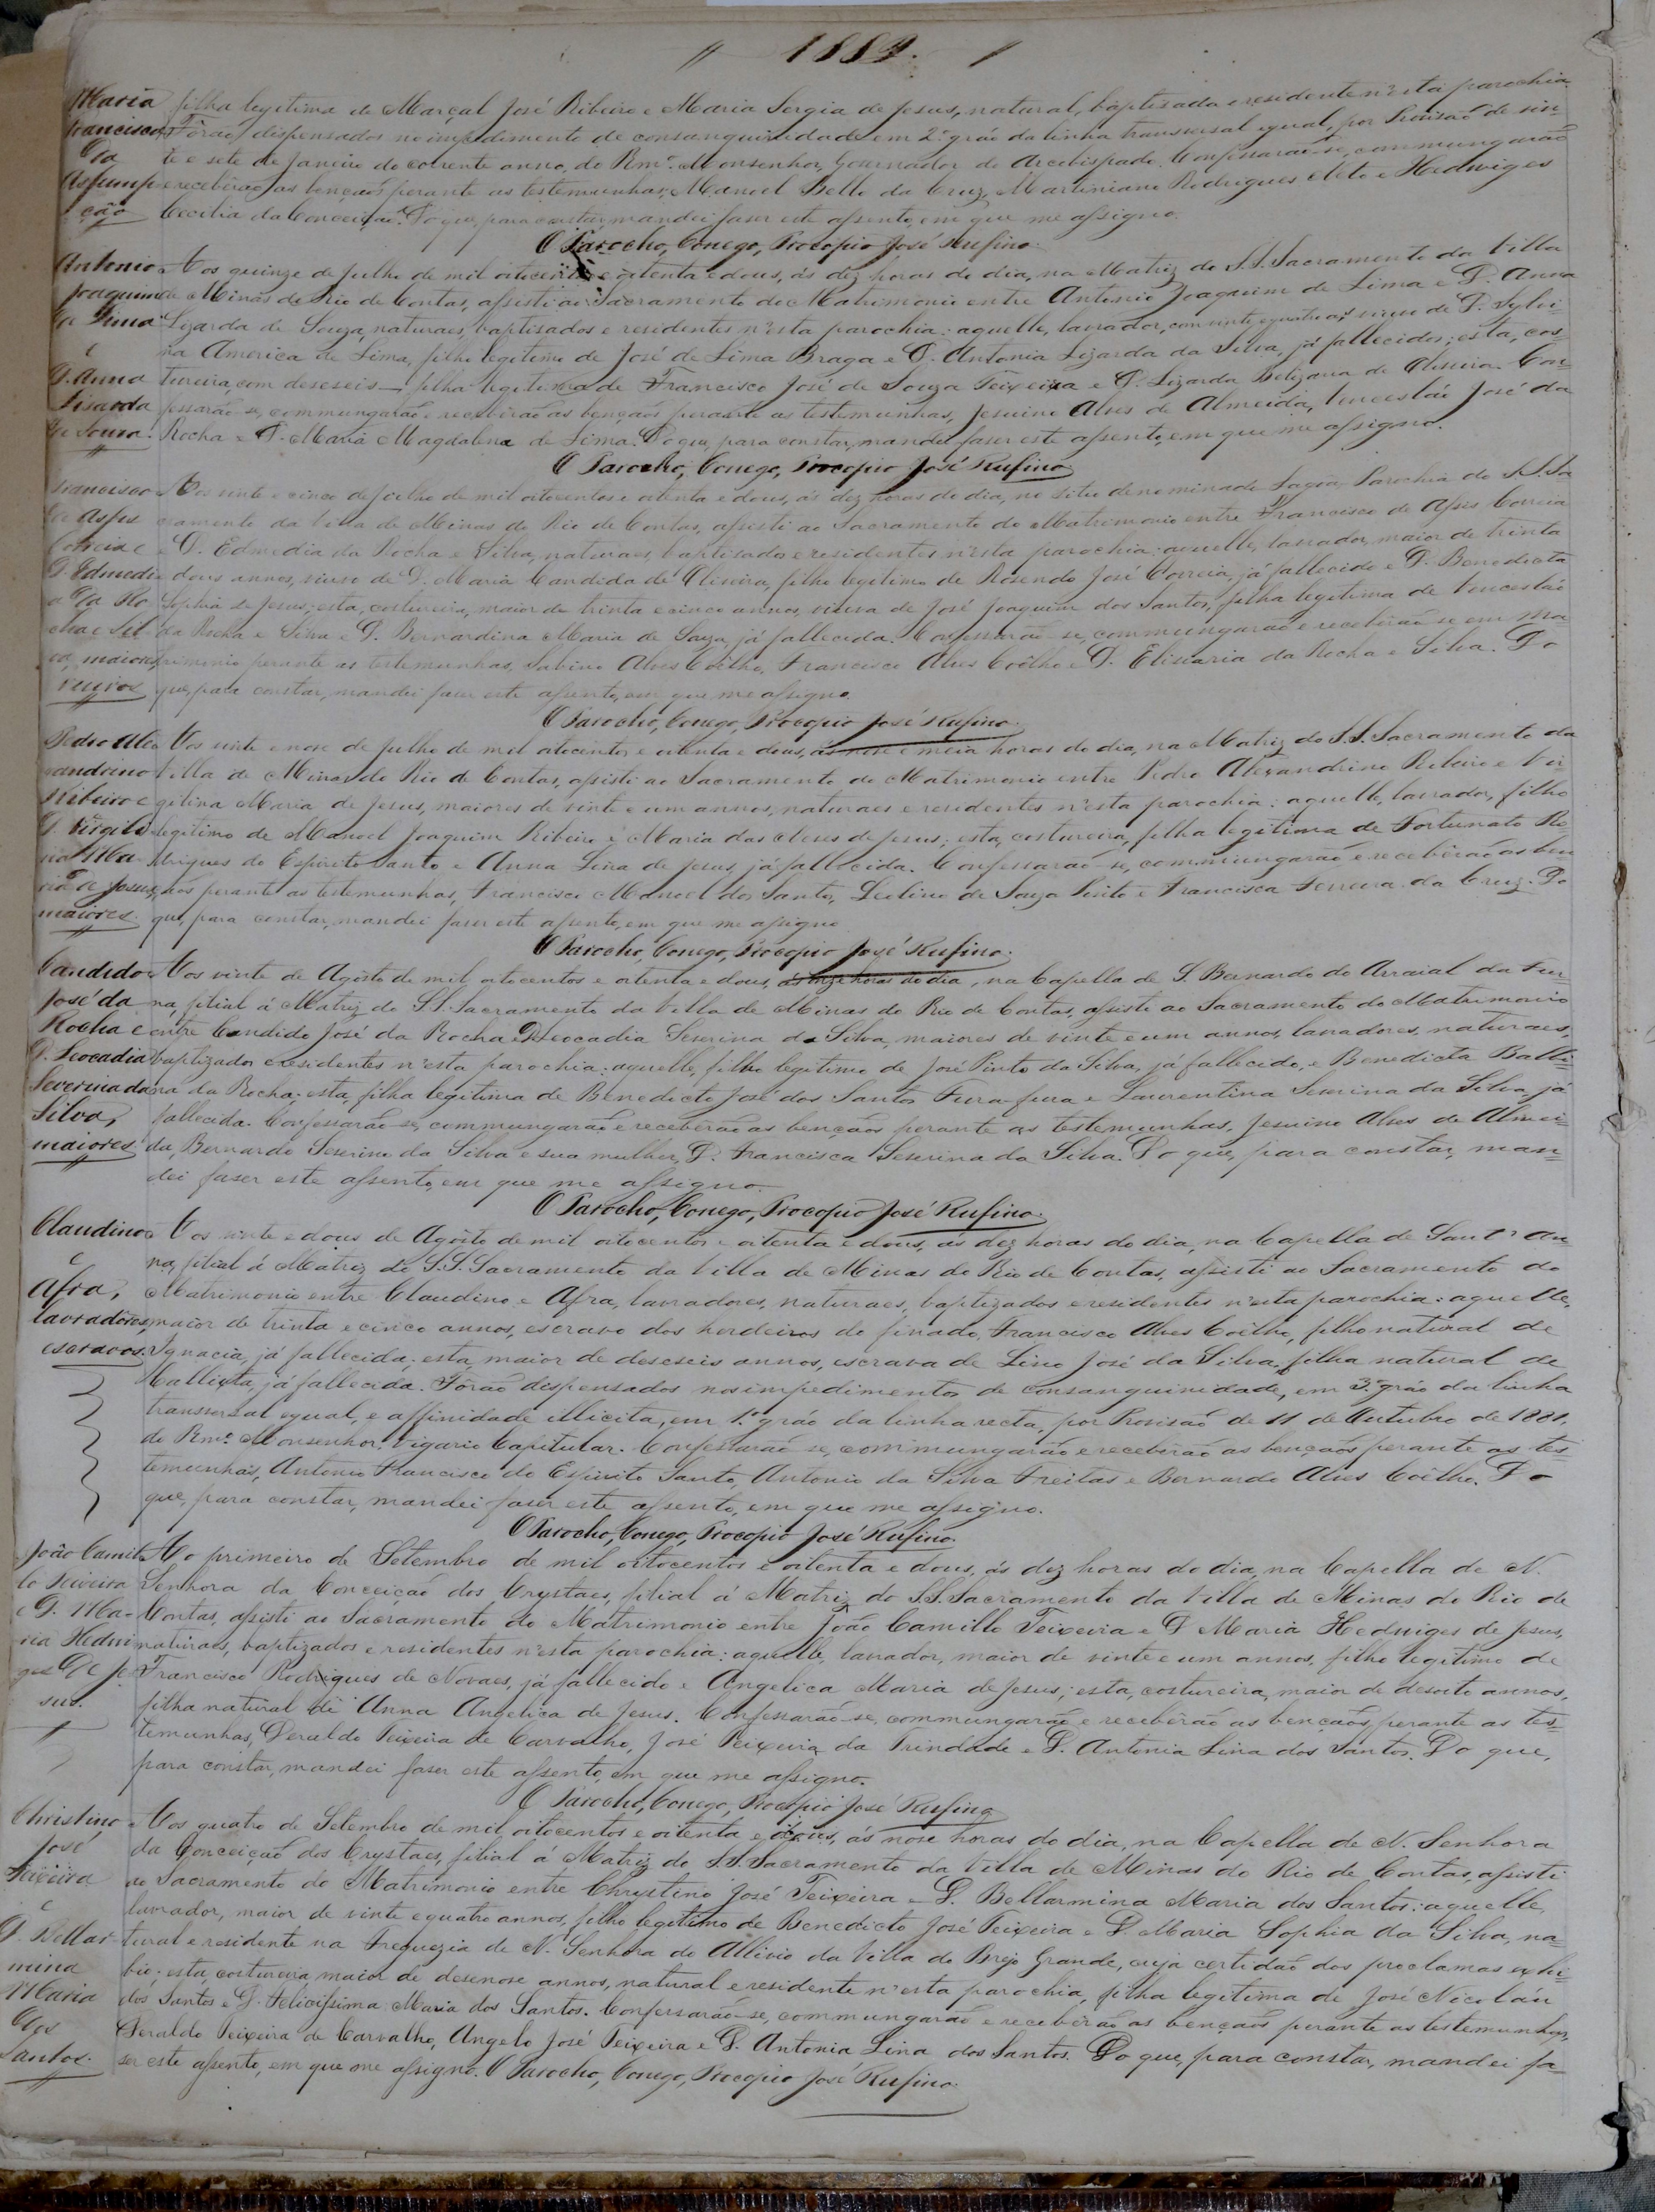 1882.
Maria filha legitima de Marçal José Ribeiro e Maria Sergia de Jesus, natural, baptisada e residente n'esta parochia.
Francisca Forão dispensados no impedimento de consanguinidade em 2º gráo da linha transversal egual, por Provisão de vin-
da te e sete de Janeiro do corrente anno, do Rmº Monsenhor, Governador do Arcebispado. Confessarão-se, commungarão
Assump- e receberão as bençãos perante as testemunhas, Manoel Bello da Cruz, Martiniano Rodrigues Neto e Hedwiges
ção Cecilia da Conceição. Do que, para constar, mandei faser este assento, em que me assigno.
O Parocho, Conego, Procopio José Rufino.
Antonio Aos quinze de Julho de mil oitocentos e oitenta e dous, ás dez horas do dia, na Matriz do S.S. Sacramento da Villa
Joaquim de Minas do Rio de Contas, assisti ao Sacramento do Matrimonio entre Antonio Joaquim de Lima e D. Anna
de Lima Lizarda de Souza, naturaes, baptisados e residentes n'esta parochia: aquelle, lavrador, com vinte e quatro as viuvo de D. Sylvi-
e na America de Lima, filho legitimo de José de Lima Braga e D. Antonia Lizarda da Silva, já fallecidos; esta, cos-
D. Anna tureira, com deseseis— filha legitima de Francisco José de Souza Teixeira e D. Lizarda Belizaria de Oliveira. Con-
Lisarda fessarão-se, commungarão e receberão as bençãos perante as testemunhas, Jesuino Alves de Almeida, Vencesláo José da
de Souza. Rocha e D. Maria Magdalena de Lima. Do que, para constar, mandei faser este assento, em que me assigno.
O Parocho, Conego, Procopio José Rufino
Francisco Aos vinte e cinco de Julho de mil oitocentos e oitenta e dous, ás dez horas do dia, no Sitio denominado Lagoa, Parochia do S.S. Sa
de Assis cramento da Villa de Minas do Rio de Contas, assisti ao Sacramento do Matrimonio entre Francisco de Assis Correia
Correia e e D. Edmedia da Rocha e Silva, naturaes, baptisados e residentes n'esta parochia: aquelle, lavrador, maior de trinta
D. Edmedi- e dous annos, viuvo de D. Maria Candida de Oliveira, filho legitimo de Rosendo José Correia, já fallecido e D. Benedicta
a da Ro- Sophia de Jesus; esta, costureira, maior de trinta e cinco annos, viuva de José Joaquim dos Santos, filha legitima de Vencesláo
cha e Sil- da Rocha e Silva e D. Bernardina Maria de Souza, já fallecida. Confessarão-se, commungarão e receberão-se em Ma
va, maiores trimonio perante as testemunhas, Sabino Alves Coêlho, Francisco Alves Coêlho e D. Elisiaria da Rocha e Silva. Do
viuvos que, para constar, mandei faser este assento, em que me assigno.
O Parocho, Conego, Procopio José Rufino.
Pedro Ale- Aos vinte e nove de Julho de mil oitocentos e oitenta e dous, ás nove e meia horas do dia, na Matriz do S.S. Sacramento da
xandrino Villa de Minas do Rio de Contas, assisti ao Sacramento do Matrimonio entre Pedro Alexandrino Ribeiro e Vir-
Ribeiro e gilina Maria de Jesus, maiores de vinte e um annos, naturaes e residentes n'esta parochia: aquelle, lavrador, filho
D. Virgili- legitimo de Manoel Joaquim Ribeiro e Maria das Neves de Jesus; esta, costureira, filha legitima de Fortunato Ro-
na Ma- drigues do Espirito Santo e Anna Lina de Jesus, já fallecida. Confessarão-se, commungarão e receberão as ben
ria de Jesus, çãos perante as testemunhas, Francisco Manoel dos Santos, Leolino de Souza Pinto e Francisca Ferreira da Cruz. Do
maiores. que, para constar, mandei faser este assento, em que me assigno
O Parocho, Conego, Procopio José Rufino.
Candido Aos vinte de Agosto de mil oitocentos e oitenta e dous, ás onze horas do dia, na Capella de S. Bernardo do Arraial da Fur-
José da na, filial á Matriz do S.S. Sacramento da Villa de Minas do Rio de Contas, assisti ao Sacramento do Matrimonio
Rocha e entre Candido José da Rocha e D. Leocadia Severina da Silva, maiores de vinte e um annos, lavradores, naturaes,
D. Leocadia baptizados e residentes n'esta parochia: aquelle, filho legitimo de José Pinto da Silva, já fallecido, e Benedicta Balbi-
Severina da na da Rocha; esta, filha legitima de Benedicto José dos Santos Fura-fura e Laurentina Severina da Silva, já
Silva, fallecida. Confessarão-se, commungarão e receberão as bençãos perante as testemunhas, Jesuino Alves de Almei-
maiores da, Bernardo Severino da Silva e sua mulher, D. Francisca Severina da Silva. Do que, para constar, man-
dei faser este assento, em que me assigno.
O Parocho, Conego, Procopio José Rufino.
Claudino Aos vinte e dous de Agôsto de mil oitocentos e oitenta e dous, ás dez horas do dia, na Capella de Sant'An-
e na, filial á Matriz do S.S. Sacramento da Villa de Minas do Rio de Contas, assisti ao Sacramento do
Afra, Matrimonio entre Claudino e Afra, lavradores, naturaes, baptizados e residentes n'esta parochia: aquelle,
lavradores, maior de trinta e cinco annos, escravo dos herdeiros do finado, Francisco Alves Coêlho, filho natural de
escravos. Ignacia, já fallecida; esta, maior de deseseis annos, escrava de Lino José da Silva, filha natural de
Callixta, já fallecida. Forão dispensados nos impedimentos de consanguinidade, em 3º gráo da linha
transversal egual, e affinidade illicita, em 1º gráo da linha recta, por Provisão de 11 de Outubro de 1881,
do Rmº Monsenhor Vigario Capitular. Confessarão-se, commungarão e receberão as bençãos perante as tes
temunhas, Antonio Francisco do Espirito Santo, Antonio da Silva Freitas e Bernardo Alves Coêlho. Do
que, para constar, mandei faser este assento, em que me assigno.
O Parocho, Conego, Procopio José Rufino.
João Camil- Ao primeiro de Setembro de mil oitocentos e oitenta e dous, ás dez horas do dia, na Capella de N.
lo Teixeira Senhora da Conceição dos Crystaes, filial á Matriz do S.S. Sacramento da Villa de Minas do Rio de
e D. Ma- Contas, assisti ao Sacramento do Matrimonio entre João Camillo Teixeira e D. Maria Hedwiges de Jesus,
ria Hedwi naturaes, baptizados e residentes n'esta parochia: aquelle, lavrador, maior de vinte e um annos, filho legitimo de
ges de Je- Francisco Rodrigues de Novaes, já fallecido e Angelica Maria de Jesus; esta, costureira, maior de desoito annos,
sus. filha natural de Anna Angelica de Jesus. Confessarão-se, commungarão e receberão as bençãos, perante as tes-
temunhas, Geraldo Teixeira de Carvalho, José Teixeira da Trindade e D. Antonia Lina dos Santos. Do que,
para constar, mandei faser este assento, em que me assigno.
O Parocho, Conego, Procopio José Rufino
Christino Aos quatro de Setembro de mil oitocentos e oitenta e dous, ás nove horas do dia, na Capella de N. Senhora
José da Conceição dos Crystaes, filial á Matriz do S.S. Sacramento da Villa de Minas do Rio de Contas, assisti
Teixeira ao Sacramento do Matrimonio entre Chrystino José Teixeira e D. Bellarmina Maria dos Santos: aquelle,
e lavrador, maior de vinte e quatro annos, filho legitimo de Benedicto José Teixeira e D. Maria Sophia da Silva, na-
D. Bellar- tural e residente na Freguezia de N. Senhora do Allivio da Villa do Brejo Grande, cuja certidão dos proclamas exhi-
mina bio; esta, costureira, maior de desenove annos, natural e residente n'esta parochia, filha legitima de José Nicoláu
Maria dos Santos e D. Felicissima Maria dos Santos. Confessarão-se, commungarão e receberão as bençãos perante as testemunhas,
dos Geraldo Teixeira de Carvalho, Angelo José Teixeira e D. Antonia Lina dos Santos. Do que, para constar, mandei fa-
Santos. ser este assento, em que me assigno. O Parocho, Conego, Procopio José Rufino.